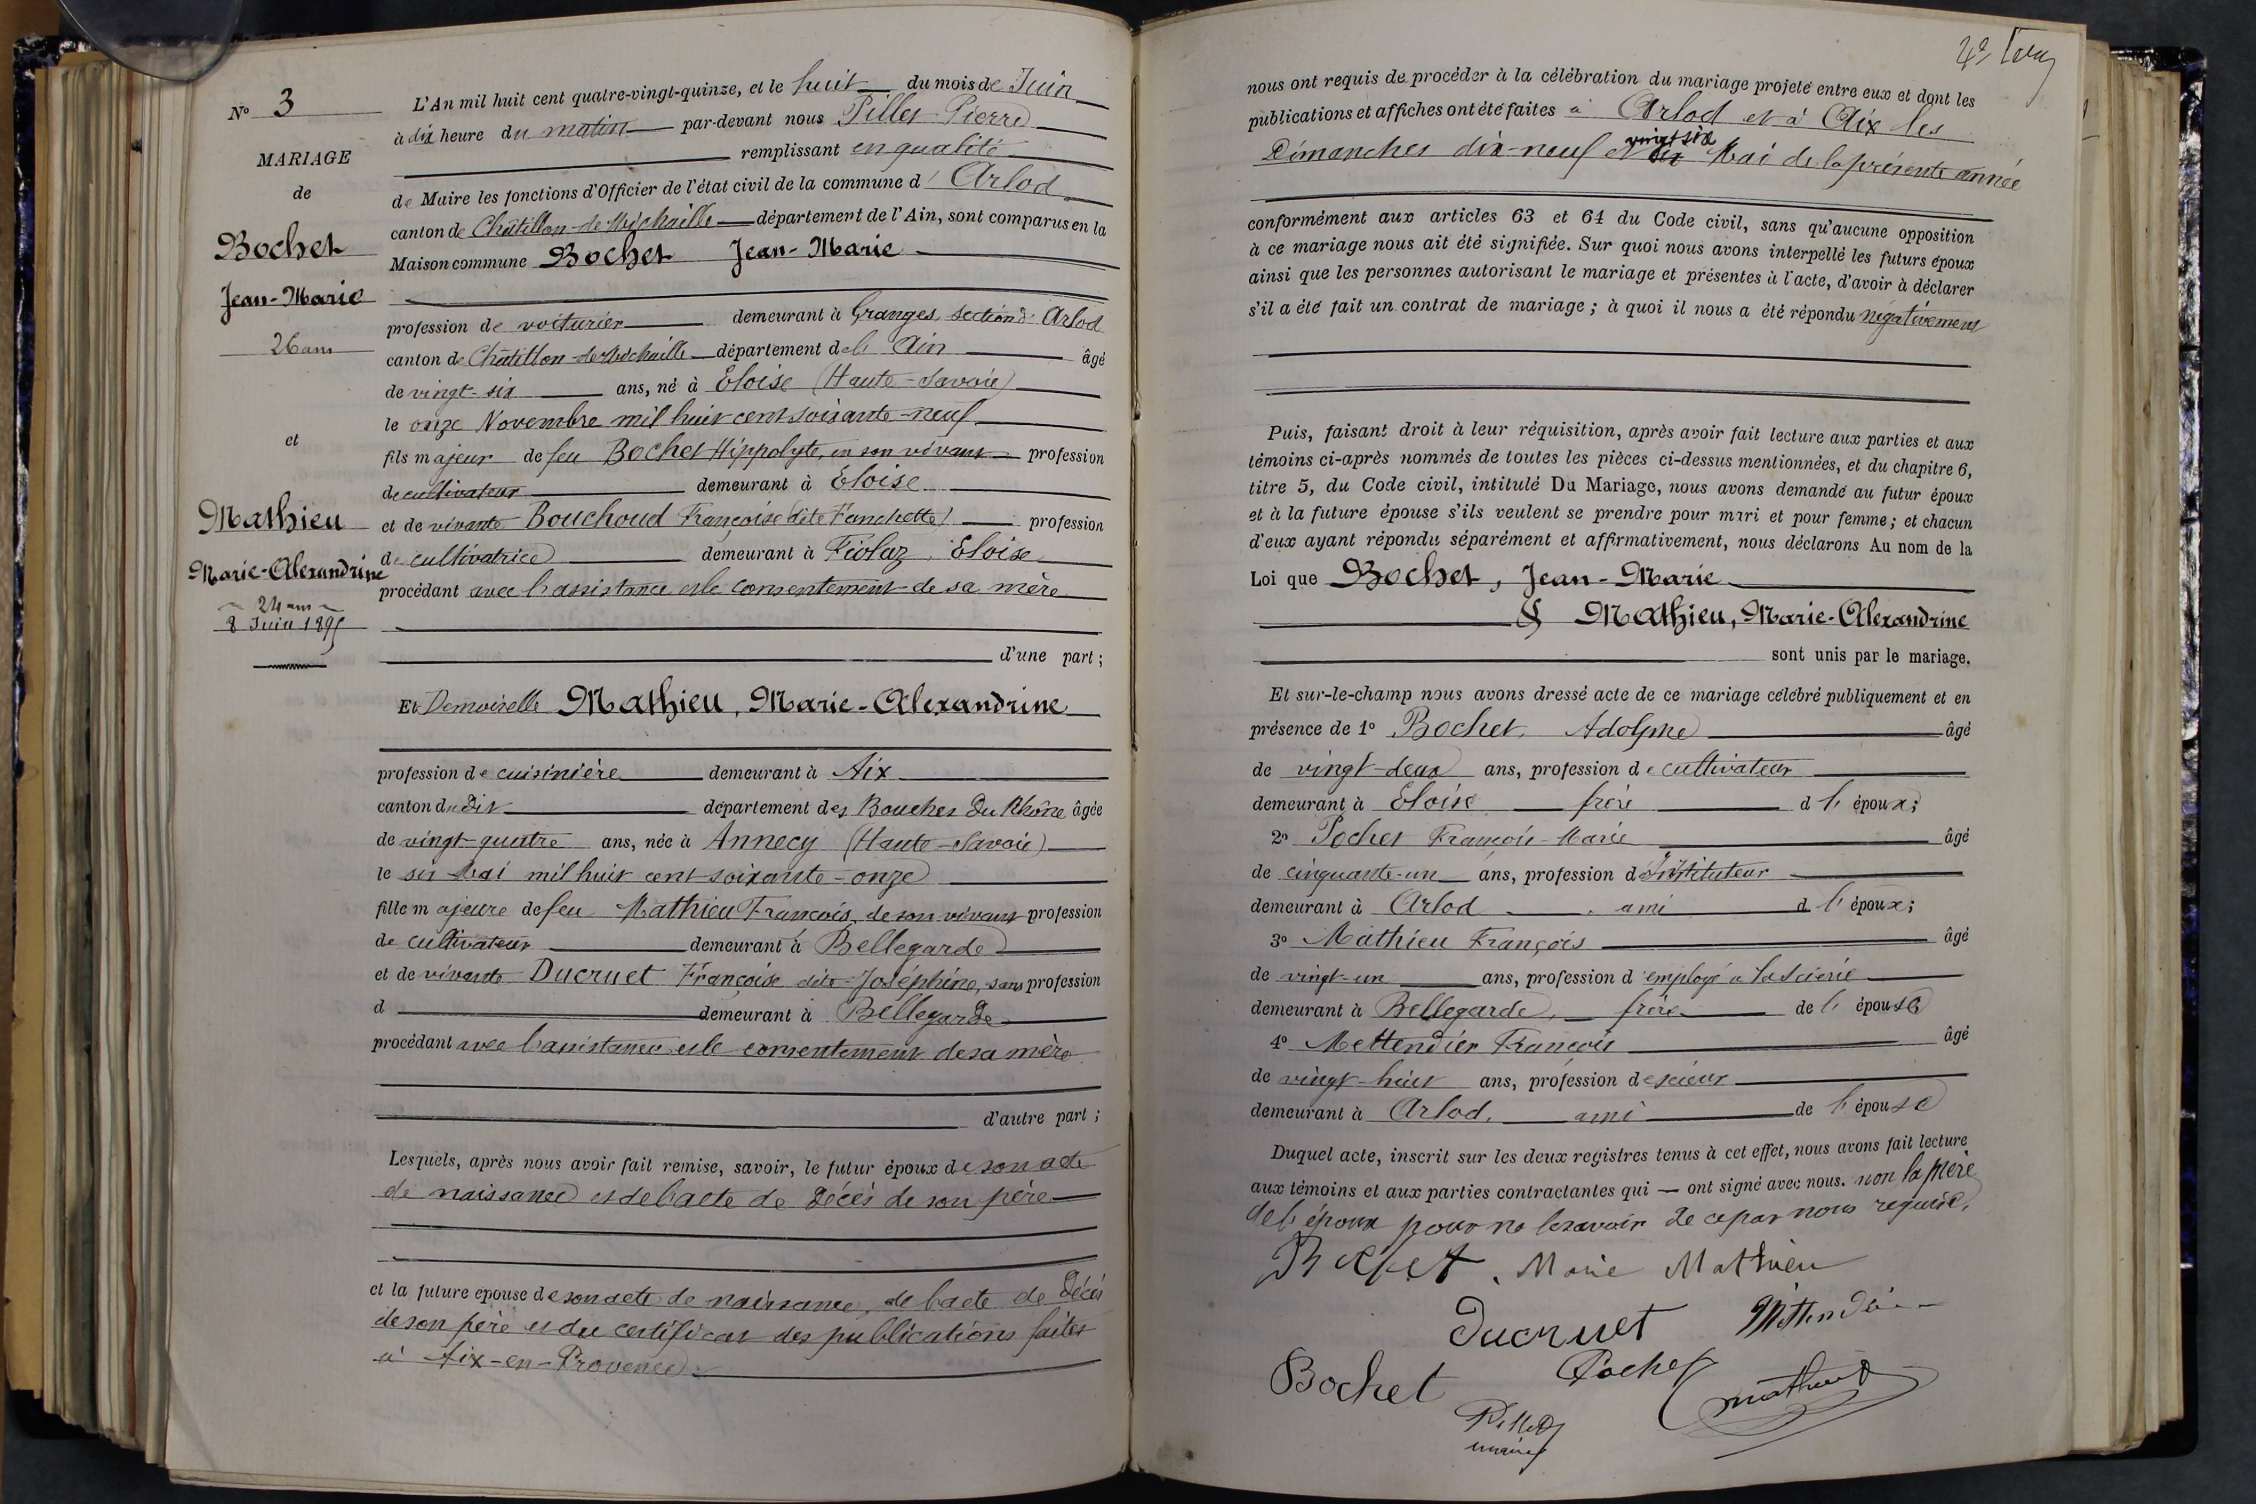 N° 3
MARIAGE
de
Bochet
Jean-Marie
26 ans
et
Mathieu
Marie-Alexandrine
24 ans
8 Juin 1895
L'An mil huit cent quatre-vingt-quinze, et le huit du mois de Juin
à dix heure du matin par-devant nous Pillet Pierre
remplissant en qualité
de Maire les fonctions d'Officier de l'état civil de la commune d'Arlod
canton de Châtillon-de-Michaille département de l'Ain, sont comparus en la
Maison commune Bochet Jean-Marie
profession de voiturier demeurant à Granges, section d'Arlod
canton de Châtillon-de-Michaille département de l'Ain âgé
de vingt-six ans, né à Eloise (Haute-Savoie)
le onze Novembre mil huit cent soixante-neuf
fils majeur de feu Bochet Hippolyte, en son vivant profession
de cultivateur demeurant à Eloise
et de vivante Bouchoud Françoise (dite Fanchette) profession
de cultivatrice demeurant à Fiolaz, Eloise
procédant avec l'assistance et le consentement de sa mère
d'une part ;
Et Demoiselle Mathieu, Marie-Alexandrine
profession de cuisinière demeurant à Aix
canton du dit département des Bouches du Rhône âgée
de vingt-quatre ans, née à Annecy (Haute-Savoie)
le six Mai mil huit cent soixante-onze
fille majeure de feu Mathieu François, de son vivant profession
de cultivateur demeurant à Bellegarde
et de vivante Ducruet Françoise dite Joséphine, sans profession
d demeurant à Bellegarde
procédant avec l'assistance et le consentement de sa mère
d'autre part ;
Lesquels, après nous avoir fait remise, savoir, le futur époux de son acte
de naissance et de l'acte de décès de son père
et la future épouse de son acte de naissance, de l'acte de décès
de son père et du certificat des publications faites
à Aix-en-Provence
nous ont requis de procéder à la célébration du mariage projeté entre eux et dont les
publications et affiches ont été faites à Arlod et à Aix les
Dimanches dix-neuf et vingt six Mai de la présente année
conformément aux articles 63 et 64 du Code civil, sans qu'aucune opposition
à ce mariage nous ait été signifiée. Sur quoi nous avons interpellé les futurs époux
ainsi que les personnes autorisant le mariage et présentes à l'acte, d'avoir à déclarer
s'il a été fait un contrat de mariage ; à quoi il nous a été répondu négativement
Puis, faisant droit à leur réquisition, après avoir fait lecture aux parties et aux
témoins ci-après nommés de toutes les pièces ci-dessus mentionnées, et du chapitre 6,
titre 5, du Code civil, intitulé Du Mariage, nous avons demandé au futur époux
et à la future épouse s'ils veulent se prendre pour mari et pour femme ; et chacun
d'eux ayant répondu séparément et affirmativement, nous déclarons Au nom de la
Loi que Bochet, Jean-Marie
& Mathieu, Marie-Alexandrine
sont unis par le mariage.
Et sur-le-champ nous avons dressé acte de ce mariage célébré publiquement et en
présence de 1° Bochet, Adolphe âgé
de vingt-deux ans, profession de cultivateur
demeurant à Eloise frère d l'époux ;
2° Pochet François-Marie âgé
de cinquante-un ans, profession d'Instituteur
demeurant à Arlod, ami d l'époux ;
3° Mathieu François âgé
de vingt-un ans, profession d'employé à la scierie
demeurant à Bellegarde, frère de l'épouse
4° Mettendier François âgé
de vingt-huit ans, profession de scieur
demeurant à Arlod, ami de l'épouse
Duquel acte, inscrit sur les deux registres tenus à cet effet, nous avons fait lecture
aux témoins et aux parties contractantes qui — ont signé avec nous. non la mère
de l'époux pour ne le savoir de ce par nous requise.
Bochet. Marie Mathieu
Ducruet Mettendier
Bochet Pochet Mathieu
Pillet
maire